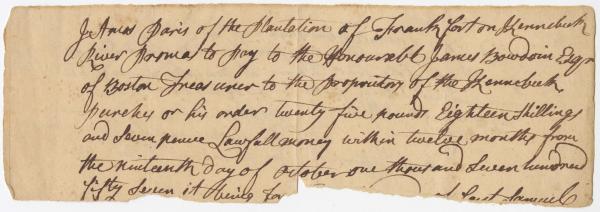 I Amos Paris of the Plantation of Frankfort on Kennebeck
River Promas to pay to the Honourabl James Bowdoin Esqr
of Boston Treasurer to the Propriotory of the Kennebeck
purches or his order twenty five pounds Eighteen Shillings
and Seven pence Lawfull money within twelve months from
the ninteenth day of october one thousand Seven hundred
fifty Seven it being for Samuel